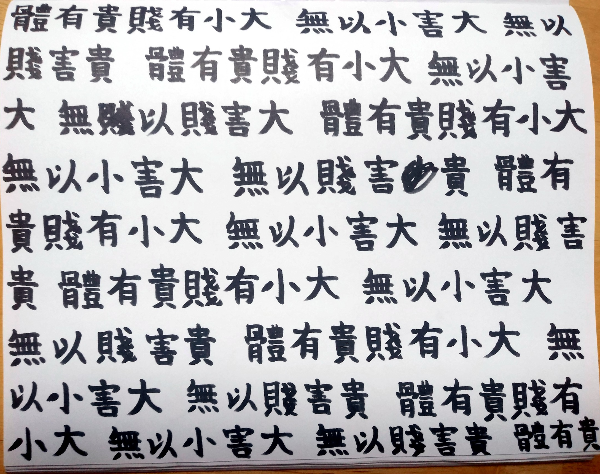 體有貴賤有小大 無以小害大 無以
賤害貴 體有貴賤有小大 無以小害
大 無賤以賤害大 體有貴賤有小大
無以小害大 無以賤害貴 體有
貴賤有小大 無以小害大 無以賤害
貴 體有貴賤有小大 無以小害大
無以賤害貴 體有貴賤有小大 無
以小害大 無以賤害貴 體有貴賤有
小大 無以小害大 無以賤害貴 體有貴